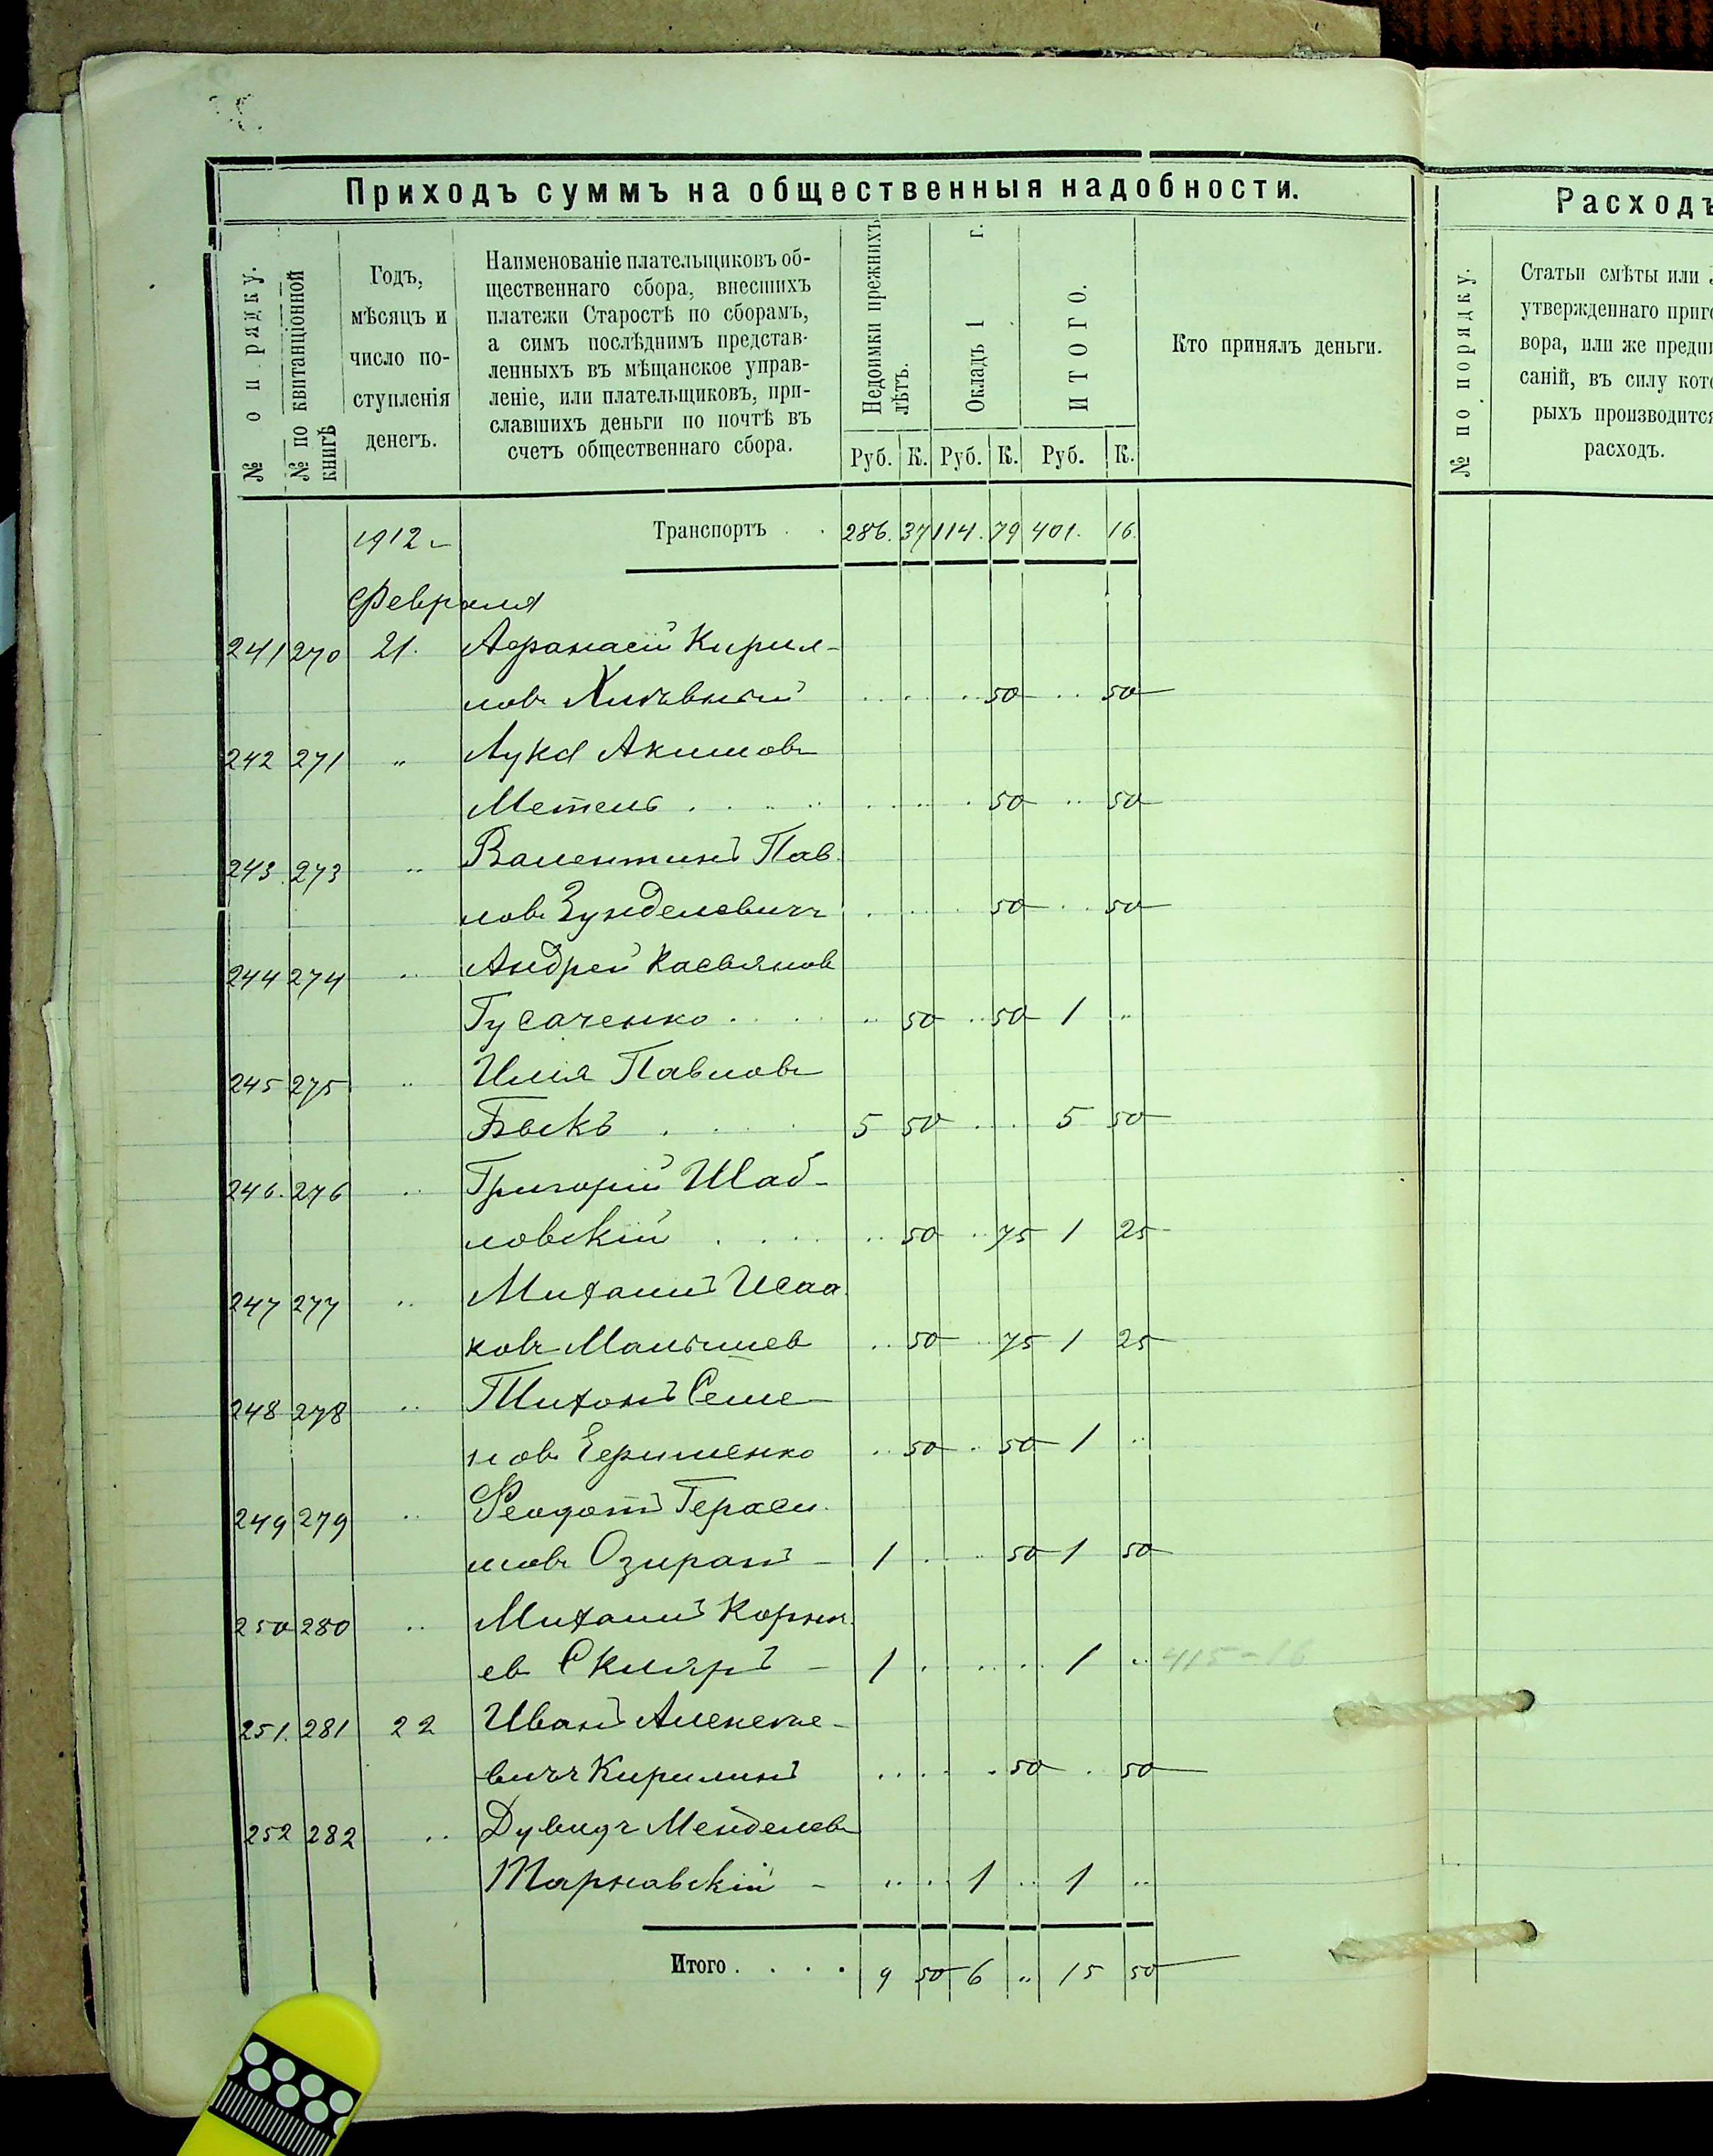 Приходъ суммъ на общественныя надобности.
№ по рядку.
№ по квитанціонной книгѣ
Годъ,
мѣсяцъ и
число по-
ступленія
денегъ.
Наименованіе плательщиковъ об-
щественнаго сбора, внесшихъ
платежи Старостѣ по сборамъ,
а симъ послѣднимъ представ-
ленныхъ въ мѣщанское управ-
леніе, или плательщиковъ, при-
славшихъ деньги по почтѣ въ
счетъ общественнаго сбора.
Недоимки прежнихъ лѣтъ.
Окладъ 1 г.
ИТОГО.
Руб. К. Руб. К. Руб. К.
Кто принялъ деньги.
1912 Транспортъ . . 286. 37 114. 79 401. 16.
Февраля
241 270 21. Афанасій Кирил-
ловъ .. .. .. 50 .. 50
242 271 „ Лука Акимовъ
Метель . . . .. .. .. 50 .. 50
243 273 „ Валентинъ Пав
ловъ Зунделевичъ .. .. .. 50 .. 50
244 274 „ Андрей Касьянов
Гусаченко . . . .. 50 .. 50 1 ..
245 275 „ Илія Павловъ
Быкъ . . . 5 50 .. .. 5 50
246. 276 „ Григорій Шаб-
ловскій . . . .. 50 .. 75 1 25
247 277 „ Михаилъ Исаа
ковъ Малышев .. 50 .. 75 1 25
248 278 „ Тихонъ Семе-
новъ Ефименко .. 50 .. 50 1 ..
249 279 „ Феодотъ Гераси
мовъ Озиранъ - 1 .. .. 50 1 50
250 280 „ Михаилъ Корни
ев Скляръ - 1 .. .. .. 1 .. 415-16
251. 281 22 Иванъ Алексѣе-
вичъ Кирилинъ .. .. .. 50 . 50
252 282 „ Дувидъ Менделевъ
Тарнавскій - .. .. 1 .. 1 ..
Итого . . . . 9 50 6 „ 15 50
Расходъ
№ по порядку.
Статьи смѣты или
утвержденнаго приго
вора, или же предпи
саній, въ силу кото
рыхъ производится
расходъ.